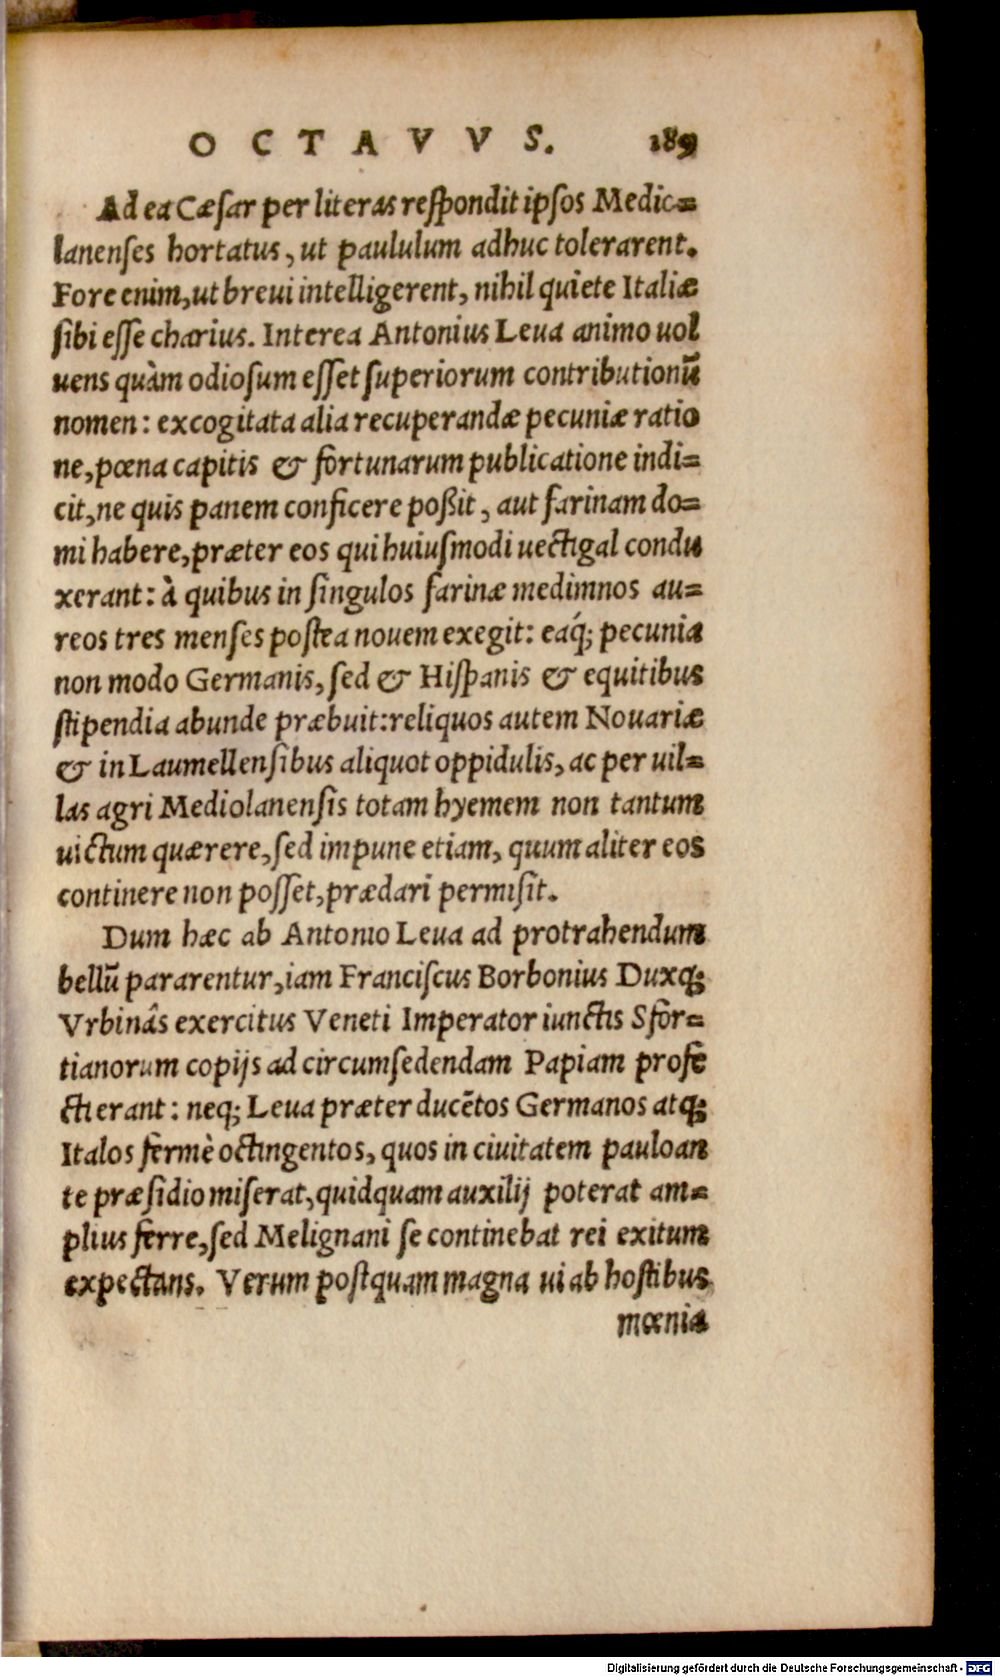 OCTAVVS. 189
Ad ea Cæſar per literas reſpondit ipſos Medio=
lanenſes hortatus, ut paululum adhuc tolerarent.
Fore enim, ut breui intelligerent, nihil quiete Italiæ
ſibi eſſe charius. Interea Antonius Leua animo uol
uens quàm odioſum eſſet ſuperiorum contributionũ
nomen: excogitata alia recuperandæ pecuniæ ratio
ne, pœna capitis & fortunarum publicatione indi=
cit, ne quis panem conficere poßit, aut farinam do=
mi habere, præter eos qui huiuſmodi uectigal condu
xerant: à quibus in ſingulos farinæ medimnos au=
reos tres menſes poſtea nouem exegit: eaq́; pecunia
non modo Germanis, ſed & Hiſpanis & equitibus
ſtipendia abunde præbuit: reliquos autem Nouariæ
& in Laumellenſibus aliquot oppidulis, ac per uil=
las agri Mediolanenſis totam hyemem non tantum
uictum quærere, ſed impune etiam, quum aliter eos
continere non poſſet, prædari permiſit.
Dum hæc ab Antonio Leua ad protrahendum
bellũ pararentur, iam Franciſcus Borbonius Duxq;
Vrbinâs exercitus Veneti Imperator iunctis Sfor=
tianorum copijs ad circumſedendam Papiam profe
cti erant: neq; Leua præter ducẽtos Germanos atq;
Italos fermè octingentos, quos in ciuitatem pauloan
te præſidio miſerat, quidquam auxilij poterat am=
plius ferre, ſed Melignani ſe continebat rei exitum
expectans. Verum poſtquam magna ui ab hoſtibus
mœnia
Digitalisierung gefördert durch die Deutsche Forschungsgemeinschaft - DFG